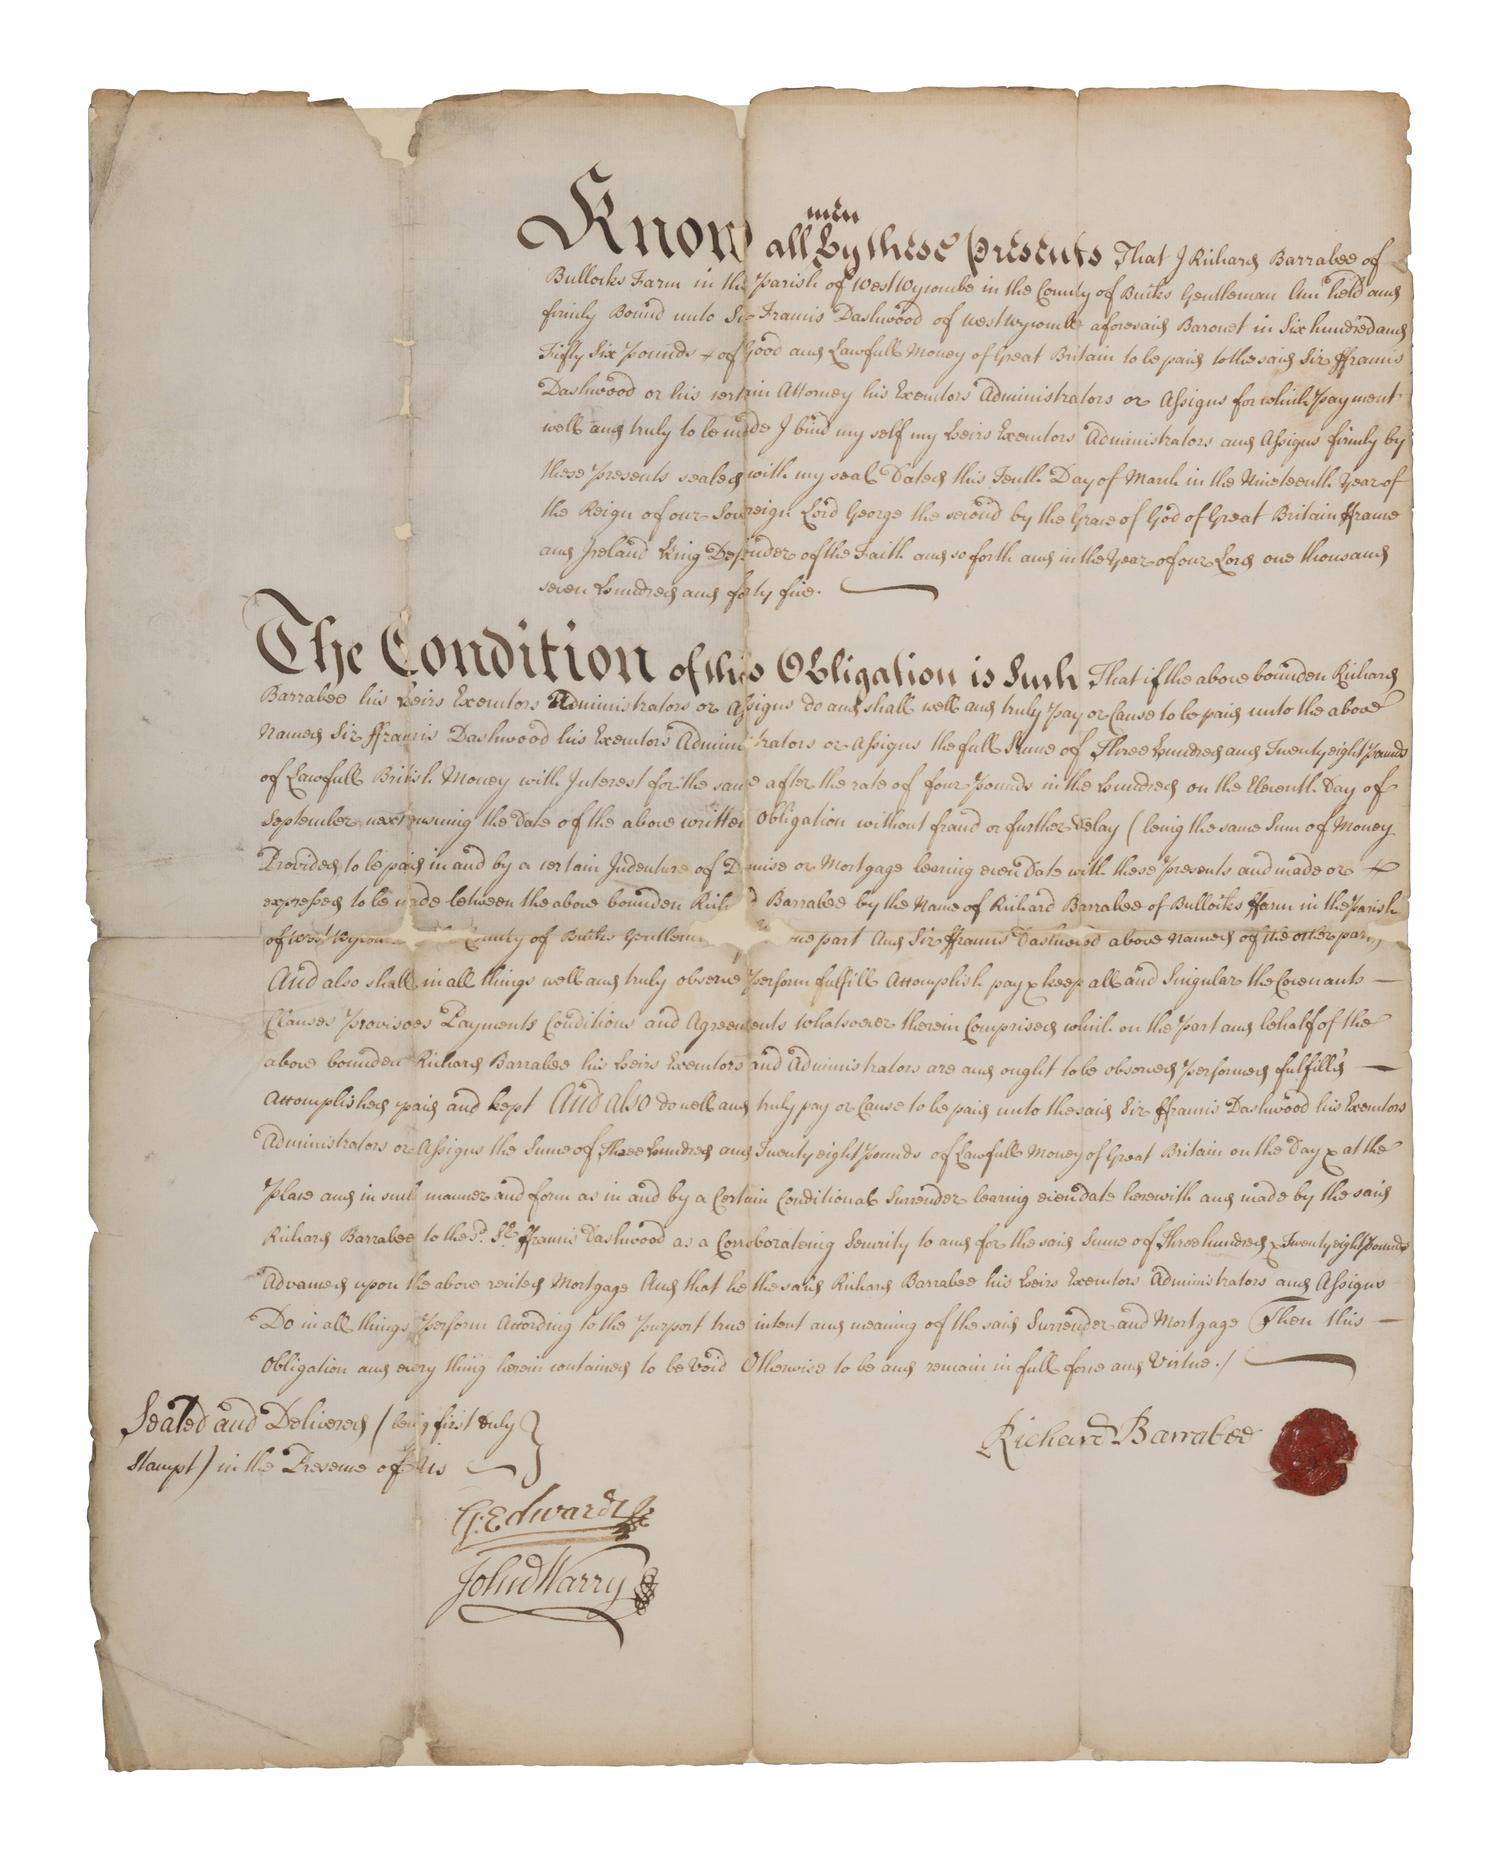 men
Know all By these presents That I Richard Barrabee of
Bullocks Farm in the Parish of West Wycombe in the County of Bucks Gentleman Am held and
firmly Bound unto Sir Francis Dashwood of West Wycombe aforesaid Baronet in Six hundred and
Fifty Six Pounds of Good and Lawfull Money of Great Britain to be paid to the said Sir ffrancis
Dashwood or his certain Attorney his Executors Administrators or Assigns for which Payment
well and truly to be made I bind my self my Heirs Executors Administrators and Assigns firmly by
these Presents sealed with my seal Dated this Tenth Day of March in the Nineteenth Year of
the Reign of our Sovereign Lord George the second by the Grace of God of Great Britain ffrance
and Ireland King Defender of the Faith and so forth and in the Year of our Lord one thousand
seven Hundred and forty five.
The Condition of this Obligation is Such That if the above bounden Richard
Barrabee his Heirs Executors Administrators or Assigns do and shall well and truly Pay or Cause to be paid unto the above
Named Sir ffrancis Dashwood his Executors Administrators or Assigns the full Sume of Three Hundred and Twenty eight Pounds
of Lawfull British Money with Interest for the same after the rate of four Pounds in the Hundred on the Eleventh Day of
September next ensuing the Date of the above written Obligation without fraud or further Delay ( being the same Sum of Money
Provided to be paid in and by a certain Indenture of Demise or Mortgage bearing even Date with these Presents and made or
expressed to be made between the above bounden Richard Barrabee by the Name of Richard Barrabee of Bullocks ffarm in the Parish
of West Wycombe County of Bucks Gentleman one part And Sir ffrancis Dashwood above Named of the other part)
And also shall in all things well and truly observe Perform fulfill Accomplish pay & keep all and Singular the Covenants —
Clauses Provisoes Payments Conditions and Agreements whatsoever therein Comprised which on the Part and behalf of the
above bounden Richard Barrabee his Heirs Executors and Administrators are and ought to be observed Performed fulfill'd —
Accomplished paid and kept And also do well and truly pay or Cause to be paid unto the said Sir ffrancis Dashwood his Executors
Administrators or Assigns the Sume of Three Hundred and Twenty eight Pounds of Lawfull Money of Great Britain on the Day & at the
Place and in such manner and form as in and by a Certain Conditional Surrender bearing even date herewith and made by the said
Richard Barrabee to the sd. Sr. ffrancis Dashwood as a Corroborateing Security to and for the said Sume of Three hundred & Twenty eight Pounds
Advanced upon the above recited Mortgage And that he the said Richard Barrabee his Heirs Executors Administrators and Assigns
Do in all things Perform According to the Purport true intent and meaning of the said Surrender and Mortgage Then this —
Obligation and every thing herein contained to be Void Otherwise to be and remain in full force and Virtue./
Sealed and Delivered ( being first duly
stampt ) in the Presence of Us
Richard Barrabee
G: Edwards
John Warry